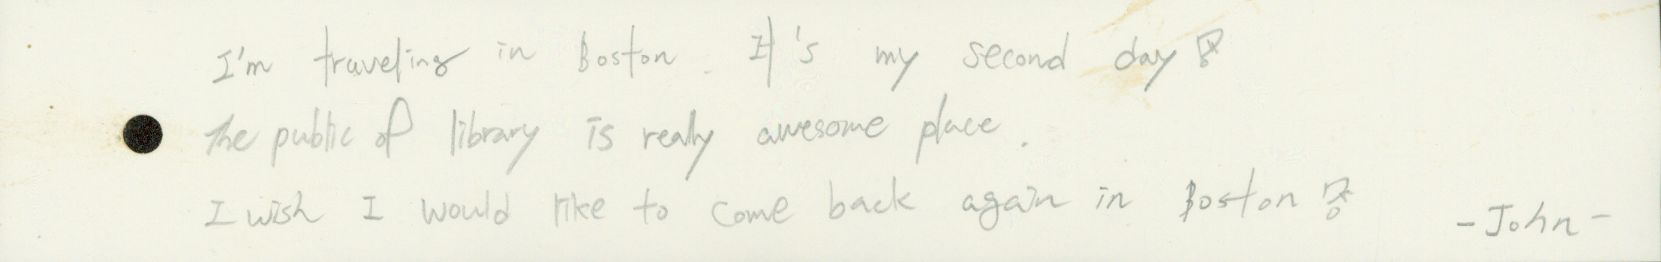 I'm traveling in Boston. It's my second day!
The public of library is really awesome place.
I wish I would like to come back again in Boston!
-John-